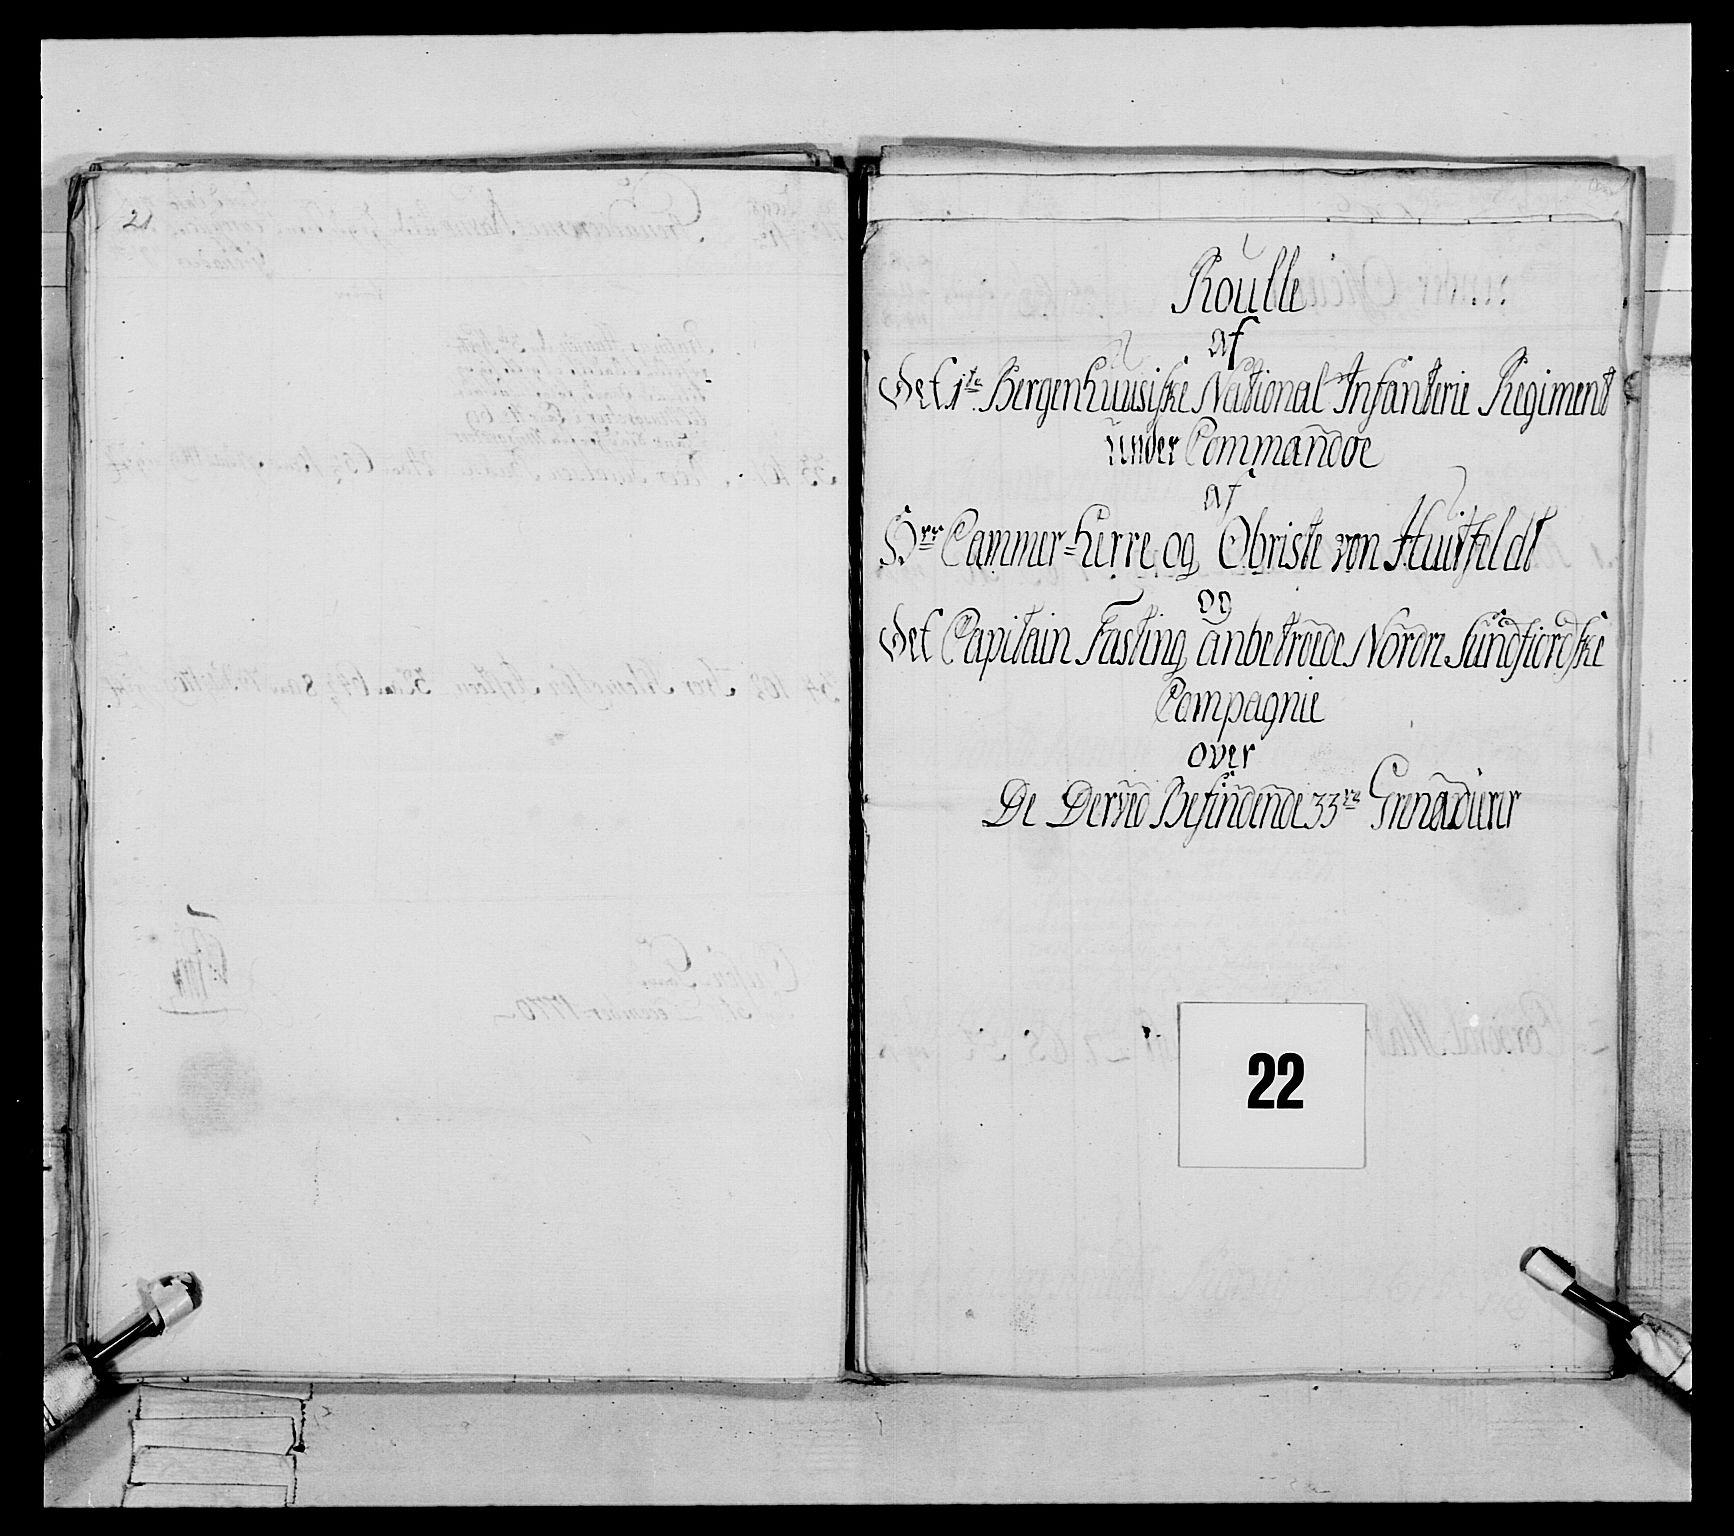 21
Roulle
af
Det 1ste Bergenhuusiske National Infanterie Regiment
under Commandoe
af
Hrr Cammer=herre og Obriste von Huitfeldt
og
det Capitain Fasting anbetroede Nordre Sundfiordske
Compagnie
over
De Derved Befindende 33re Grenaderer
22